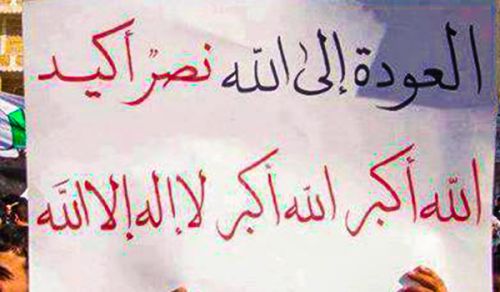 العودة إلى الله نصرٌ أكيد
الله أكبر الله أكبر لا إله إلا الله